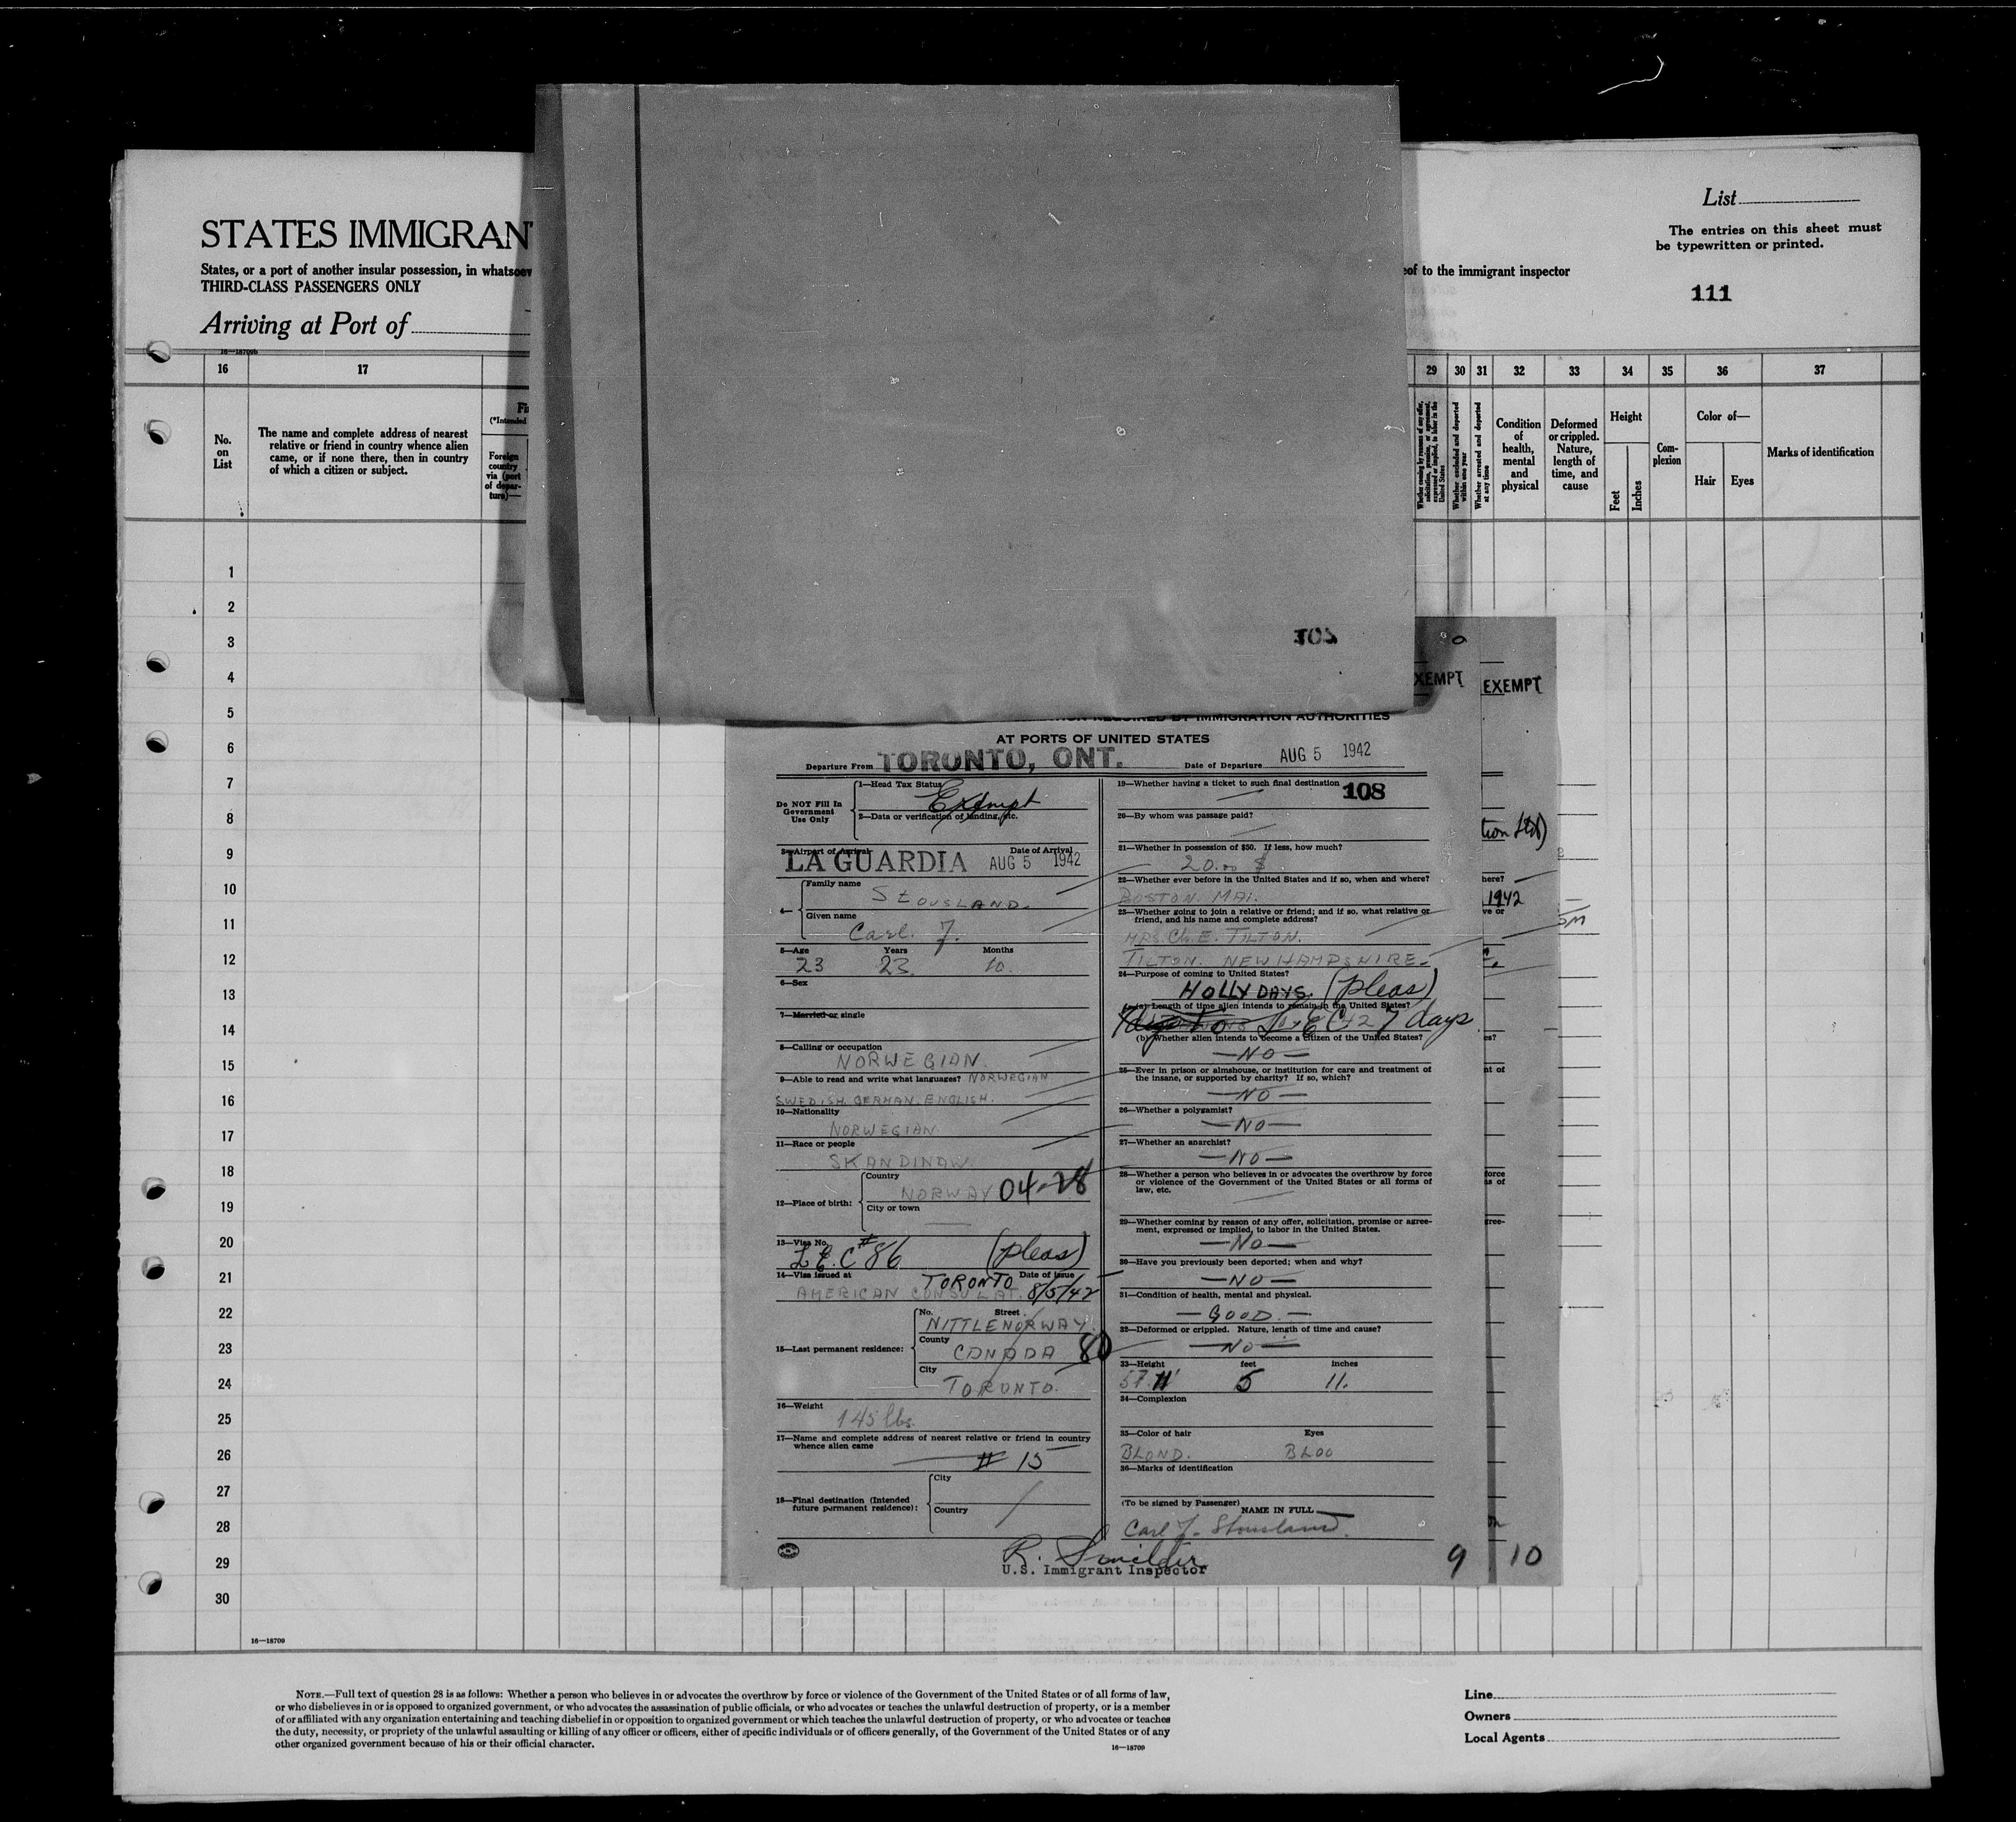 STATES IMMIGRAN
States, or a port of another insular possession, in whatsoev
THIRD-CLASS PASSENGERS ONLY
Arriving at Port of
List
The entries on this sheet must
be typewritten or printed.
eof to the immigrant inspector
111
16—18709b
16 17 29 30 31 32 33 34 35 36 37
No.
on
List
The name and complete address of nearest
relative or friend in country whence alien
came, or if none there, then in country
of which a citizen or subject.
(*Intended
Foreign
country
via (port
of depar-
ture)—
Whether coming by reason of any offer,
solicitation, promise, or agreement,
expressed or implied, to labor in the
United States
Whether excluded and deported
within one year
Whether arrested and deported
at any time
Condition
of
health,
mental
and
physical
Deformed
or crippled.
Nature,
length of
time, and
cause
Height
Feet
Inches
Com-
plexion
Color of—
Hair Eyes
Marks of identification
1
2
3
4
5
6
7
8
9
10
11
12
13
14
15
16
17
18
19
20
21
22
23
24
25
26
27
28
29
30
16—18709
XEMPT EXEMPT
REQUIRED BY IMMIGRATION AUTHORITIES
AT PORTS OF UNITED STATES
Departure From TORONTO, ONT. Date of Departure AUG 5 1942
Do NOT Fill In
Government
Use Only
1—Head Tax Status
Exempt
2—Data or verification of landing, etc.
3—Airport of Arrival Date of Arrival
LA GUARDIA AUG 5 1942
4—
Family name
STOUSLAND.
Given name
Carl. J.
5—Age Years Months
23 23. 10.
6—Sex
7—Married or single
8—Calling or occupation
NORWEGIAN.
9—Able to read and write what languages? NORWEGIAN
SWEDISH. GERMAN. ENGLISH.
10—Nationality
NORWEGIAN.
11—Race or people
SKANDINAW
12—Place of birth:
Country
NORWAY 04-28
City or town
13—Visa No.
L.E.C #86 (pleas)
14—Visa issued at TORONTO Date of issue
AMERICAN CONSULAT. 8/5/42
15—Last permanent residence:
No. Street
NITTLENORWAY.
County
CANADA 80
City
TORONTO.
16—Weight
145 lbs.
17—Name and complete address of nearest relative or friend in country
whence alien came
# 15
18—Final destination (Intended
future permanent residence):
City
Country
19—Whether having a ticket to such final destination 108
20—By whom was passage paid?
21—Whether in possession of $50. If less, how much?
20.00 $
22—Whether ever before in the United States and if so, when and where?
BOSTON. MAI.
23—Whether going to join a relative or friend; and if so, what relative or
friend, and his name and complete address?
MRS. Ch. E. TILTON.
TILTON. NEW HAMPSHIRE.
24—Purpose of coming to United States?
HOLLYDAYS. (pleas)
(a) Length of time alien intends to remain in the United States?
7 days
(b) Whether alien intends to become a citizen of the United States?
—NO—
25—Ever in prison or almshouse, or institution for care and treatment of
the insane, or supported by charity? If so, which?
—NO—
26—Whether a polygamist?
—NO—
27—Whether an anarchist?
—NO—
28—Whether a person who believes in or advocates the overthrow by force
or violence of the Government of the United States or all forms of
law, etc.
29—Whether coming by reason of any offer, solicitation, promise or agree-
ment, expressed or implied, to labor in the United States.
—NO—
30—Have you previously been deported; when and why?
—NO—
31—Condition of health, mental and physical.
—GOOD.—
32—Deformed or crippled. Nature, length of time and cause?
—NO—
33—Height feet inches
5 11.
34—Complexion
35—Color of hair Eyes
BLOND. BLOO
36—Marks of identification
(To be signed by Passenger)
NAME IN FULL
Carl J. Stousland.
U.S. Immigrant Inspector
9 10
tion Ltd)
here?
1942
ve or
es?
nt of
force
ms of
gree-
NOTE.—Full text of question 28 is as follows: Whether a person who believes in or advocates the overthrow by force or violence of the Government of the United States or of all forms of law,
or who disbelieves in or is opposed to organized government, or who advocates the assassination of public officials, or who advocates or teaches the unlawful destruction of property, or is a member
of or affiliated with any organization entertaining and teaching disbelief in or opposition to organized government or which teaches the unlawful destruction of property, or who advocates or teaches
the duty, necessity, or propriety of the unlawful assaulting or killing of any officer or officers, either of specific individuals or of officers generally, of the Government of the United States or of any
other organized government because of his or their official character.
16—18709
Line
Owners
Local Agents